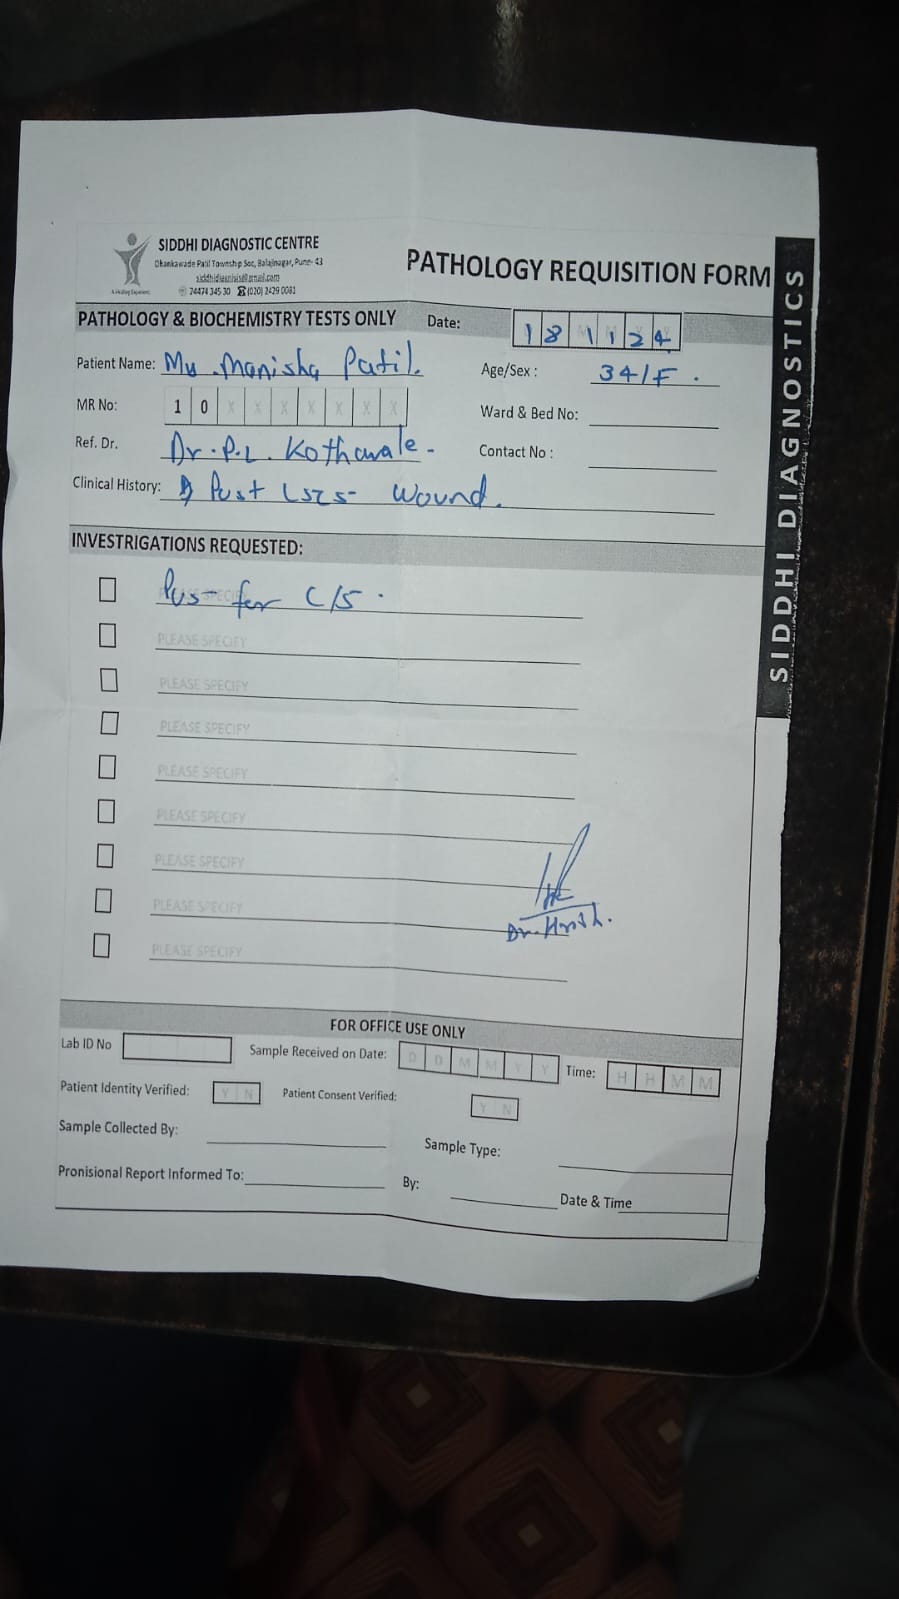 SIDDHI DIAGNOSTIC CENTRE
Dhankawade Patil Township Soc, Balajinagar, Pune- 43
siddhidiagnosis@gmail.com
74474 345 30 (020) 2429 0081
A Healing Experience
PATHOLOGY REQUISITION FORM
SIDDHI DIAGNOSTICS
PATHOLOGY & BIOCHEMISTRY TESTS ONLY Date: 18 11 24
Patient Name: Mrs. Manisha Patil. Age/Sex : 34/F.
MR No: 1 0 X X X X X X X Ward & Bed No:
Ref. Dr. Dr. P.L. Kothawale. Contact No :
Clinical History: Post LSCS wound.
INVESTRIGATIONS REQUESTED:
Pus for C/S.
PLEASE SPECIFY
PLEASE SPECIFY
PLEASE SPECIFY
PLEASE SPECIFY
PLEASE SPECIFY
PLEASE SPECIFY
PLEASE SPECIFY
PLEASE SPECIFY
FOR OFFICE USE ONLY
Lab ID No Sample Received on Date: D D M M Y Y Time: H H M M
Patient Identity Verified: Y N Patient Consent Verified: Y N
Sample Collected By: Sample Type:
Pronisional Report Informed To: By: Date & Time